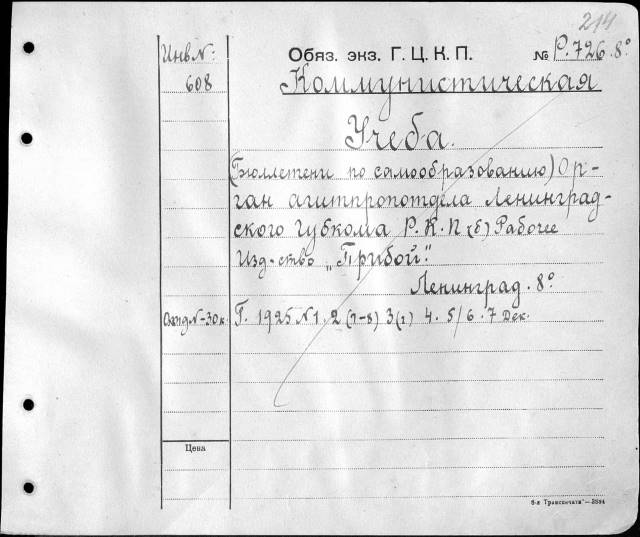 214
Инв.№:
608
Обяз. экз. Г. Ц. К. П.
№ Р. 726. 8°
Коммунистическая
Учеба.
(Бюллетени по самообразованию) Ор-
ган агитпропотдела Ленинград-
ского Губкома Р. К. П (б) Рабочее
Изд-ство „Прибой".
Ленинград. 8°
№-30к.
Г. 1925 №1. 2 (7-8) 3(2) 4. 5/6. 7 Дек.
Цена
8-я Транспечати"—3884